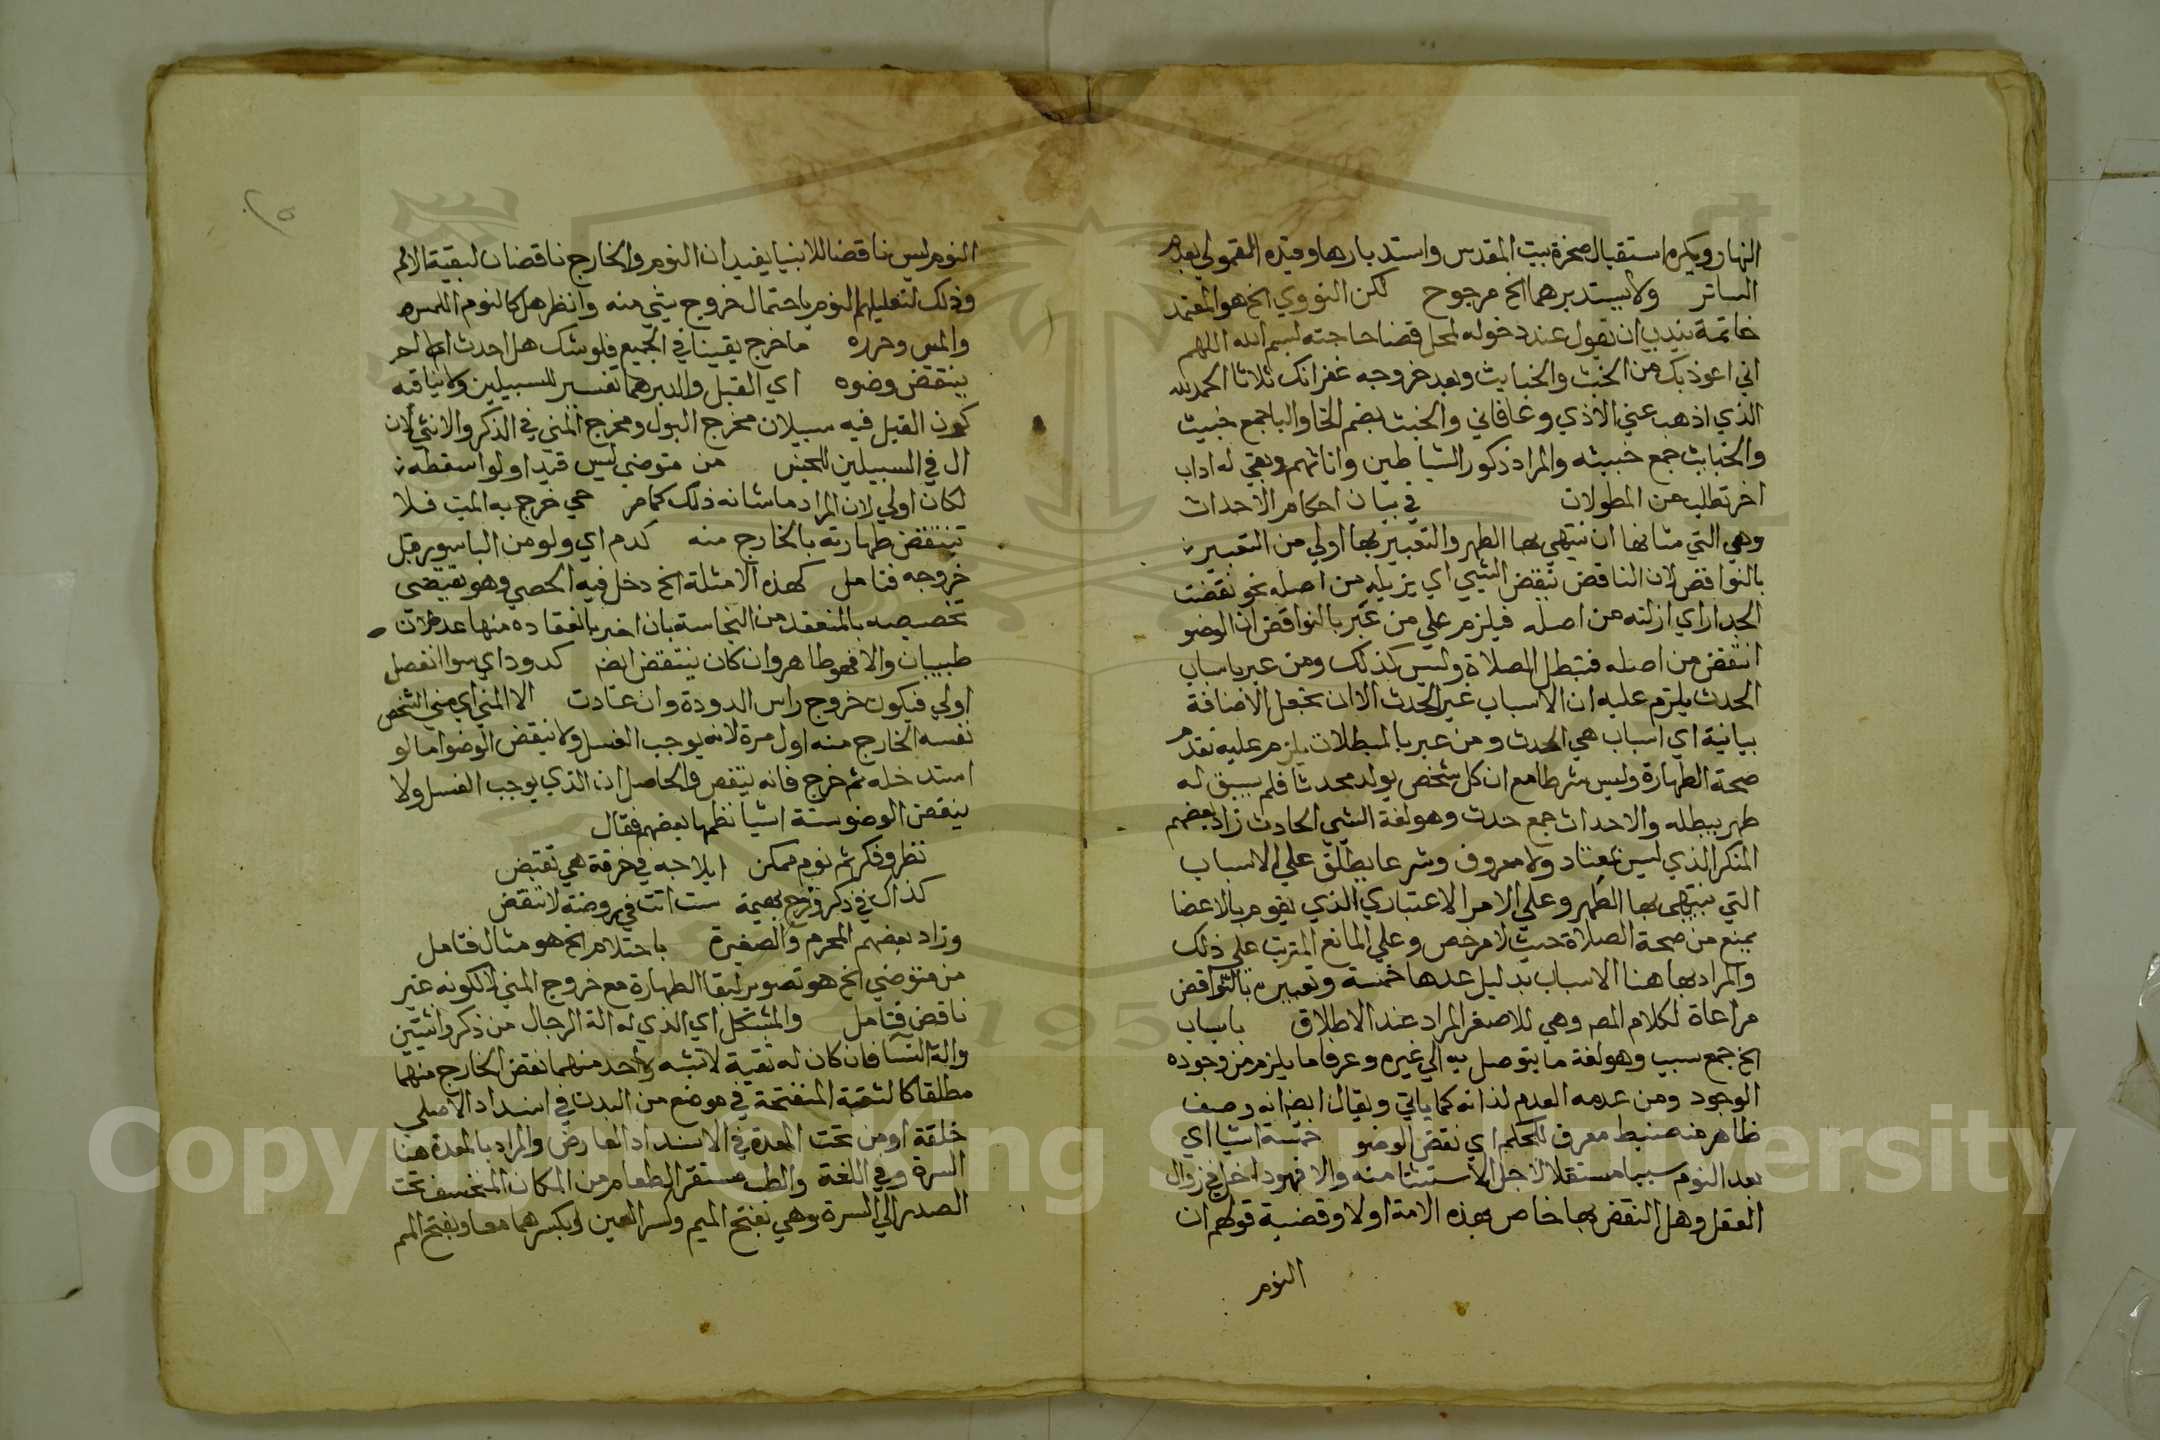 النهار ويكره استقبال صخرة بيت المقدس واستدبارها وقيده القمولي بعدم
الساتر ولا يستدبرهما الخ مرجوح لكن النووي الخ هو المعتمد
خاتمة يندب ان يقول عند دخوله لمحل قضا حاجته بسم الله اللهم
اني اعوذ بك من الخبث والخبايث وبعد خروجه غفرانك ثلاثا الحمد لله
الذي اذهب عني الاذي وعافاني والخبث بضم الخا والبا جمع خبيث
والخبايث جمع خبيثه والمراد ذكور الشياطين واناثهم وبقي له اداب
اخر تطلب من المطولات في بيان احكام الاحداث
وهي التي شانها ان ينتهي بها الطهر والتعبير بها اولي من التعبير
بالنواقض لان الناقض ينقض الشي اي يزيله من اصله نحو نقضت
الجدار اي ازلته من اصله فيلزم علي من عبر بالنواقض ان الوضو
انتقض من اصله فتبطل الصلاة وليس كذلك ومن عبر باسباب
الحدث يلزم عليه ان الاسباب غير الحدث الا ان تجعل الاضافة
بيانية اي اسباب هي الحدث ومن عبر بالمبطلات يلزم عليه تقدم
صحة الطهارة وليس شرطا مع ان كل شخص يولد محدثا فلم يسبق له
طهر يبطله والاحداث جمع حدث وهو لغة الشي الحادث زاد بعضهم
المنكر الذي ليس بمعتاد ولا معروف وشرعا يطلق علي الاسباب
التي ينتهي بها الطهر وعلي الامر الاعتباري الذي يقوم بالاعضا
يمنع من صحة الصلاة حيث لا مرخص وعلي المانع المترتب علي ذلك
والمراد بها هنا الاسباب بدليل عدها خمسة وتعبيره بالنواقض
مراعاة لكلام المصـ وهي للاصغر المراد عند الاطلاق باسباب
الخ جمع سبب وهو لغة ما يتوصل به الي غيره وعرفا ما يلزم من وجوده
الوجود ومن عدمه العدم لذاته كما ياتي ويقال ايضا انه وصف
ظاهر منضبط معرف للحكم اي نقض الوضو خمسة اشيا اي
بعد النوم سببا مستقلا لاجل الاستثنا منه والا فهو داخل في زوال
العقل وهل النقض بها خاص بهذه الامة اولا وقضية قولهم ان
النوم
النوم ليس ناقضا للانبيا يفيد ان النوم والخارج ناقضان لبقية الامم
وذلك لتعليلهم النوم باحتمال خروج شي منه وانظر هل كالنوم اللمس
والمس وحرره ما خرج يقينا في الجميع فلو شك هل احدث ام لا لم
ينتقض وضوه اي القبل والدبر هما تفسير للسبيلين ولا ينافيه
كون القبل فيه سبيلان مخرج البول ومخرج المني في الذكر والانثي لان
ال في السبيلين للجنس من متوضي ليس قيدا ولو اسقطه
لكان اولي لان المراد ما شانه ذلك كما مر حي خرج به الميت فلا
تنتقض طهارته بالخارج منه كدم اي ولو من الباسور قبل
خروجه فتامل كهذه الامثلة الخ دخل فيه الحصي وهو يقتضي
تخصيصه بالمنعقد من النجاسة بان اخبر بانعقاده منها عدلان
طبيبان والا فهو طاهر وان كان ينتقض ايضا كدود اي سوا انفصل
اولي فيكون خروج راس الدودة وان عادت الا المني اي مني الشخص
نفسه الخارج منه اول مرة لانه يوجب الغسل ولا ينقض الوضو اما لو
استدخله ثم خرج فانه ينقض والحاصل ان الذي يوجب الغسل ولا
ينقض الوضو ستة اشيا نظمها بعضهم فقال
نظر وفكر ثم نوم ممكن ايلاجه في خرقة هي تقبض
كذاك في ذكر وفرج بهيمة ست اتت في روضة لا تنقض
وزاد بعضهم المحرم والصغيرة باحتلام الخ هو مثال فتامل
من متوضي الخ هو تصوير لبقا الطهارة مع خروج المني لكونه غير
ناقض فتامل والمشكل اي الذي له الة الرجال من ذكر وانثيين
والة النسا فان كان له ثقبة لا تشبه واحد منهما نقض الخارج منهما
مطلقا كالثقبة المنفتحة في موضع من البدن في انسداد الاصلي
خلقة او من تحت المعدة في الانسداد العارض والمراد بالمعدة هنا
السرة وفي اللغة والطب مستقر الطعام من المكان المنخسف تحت
الصدر الي السرة وهي بفتح الميم وكسر العين وبكسرهما معا وبفتح الميم
٢٥
Copyright © King Saud University
1957